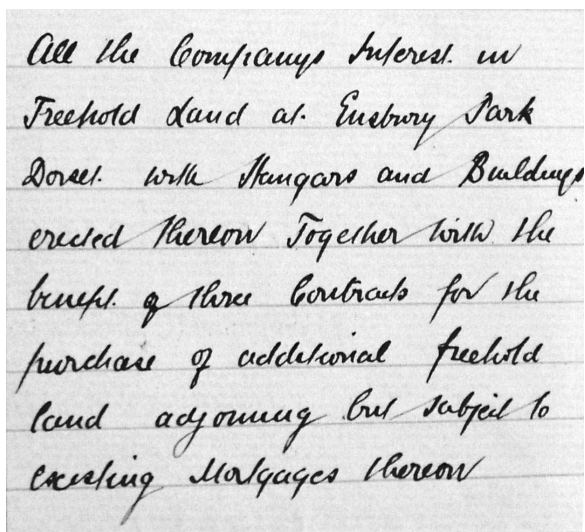 All the Companys Interest in
Freehold Land at Ensbury Park
Dorset with Hangars and Buildings
erected thereon Together with the
benefit of three Contracts for the
purchase of additional freehold
land adjoining but subject to
existing Mortgages thereon